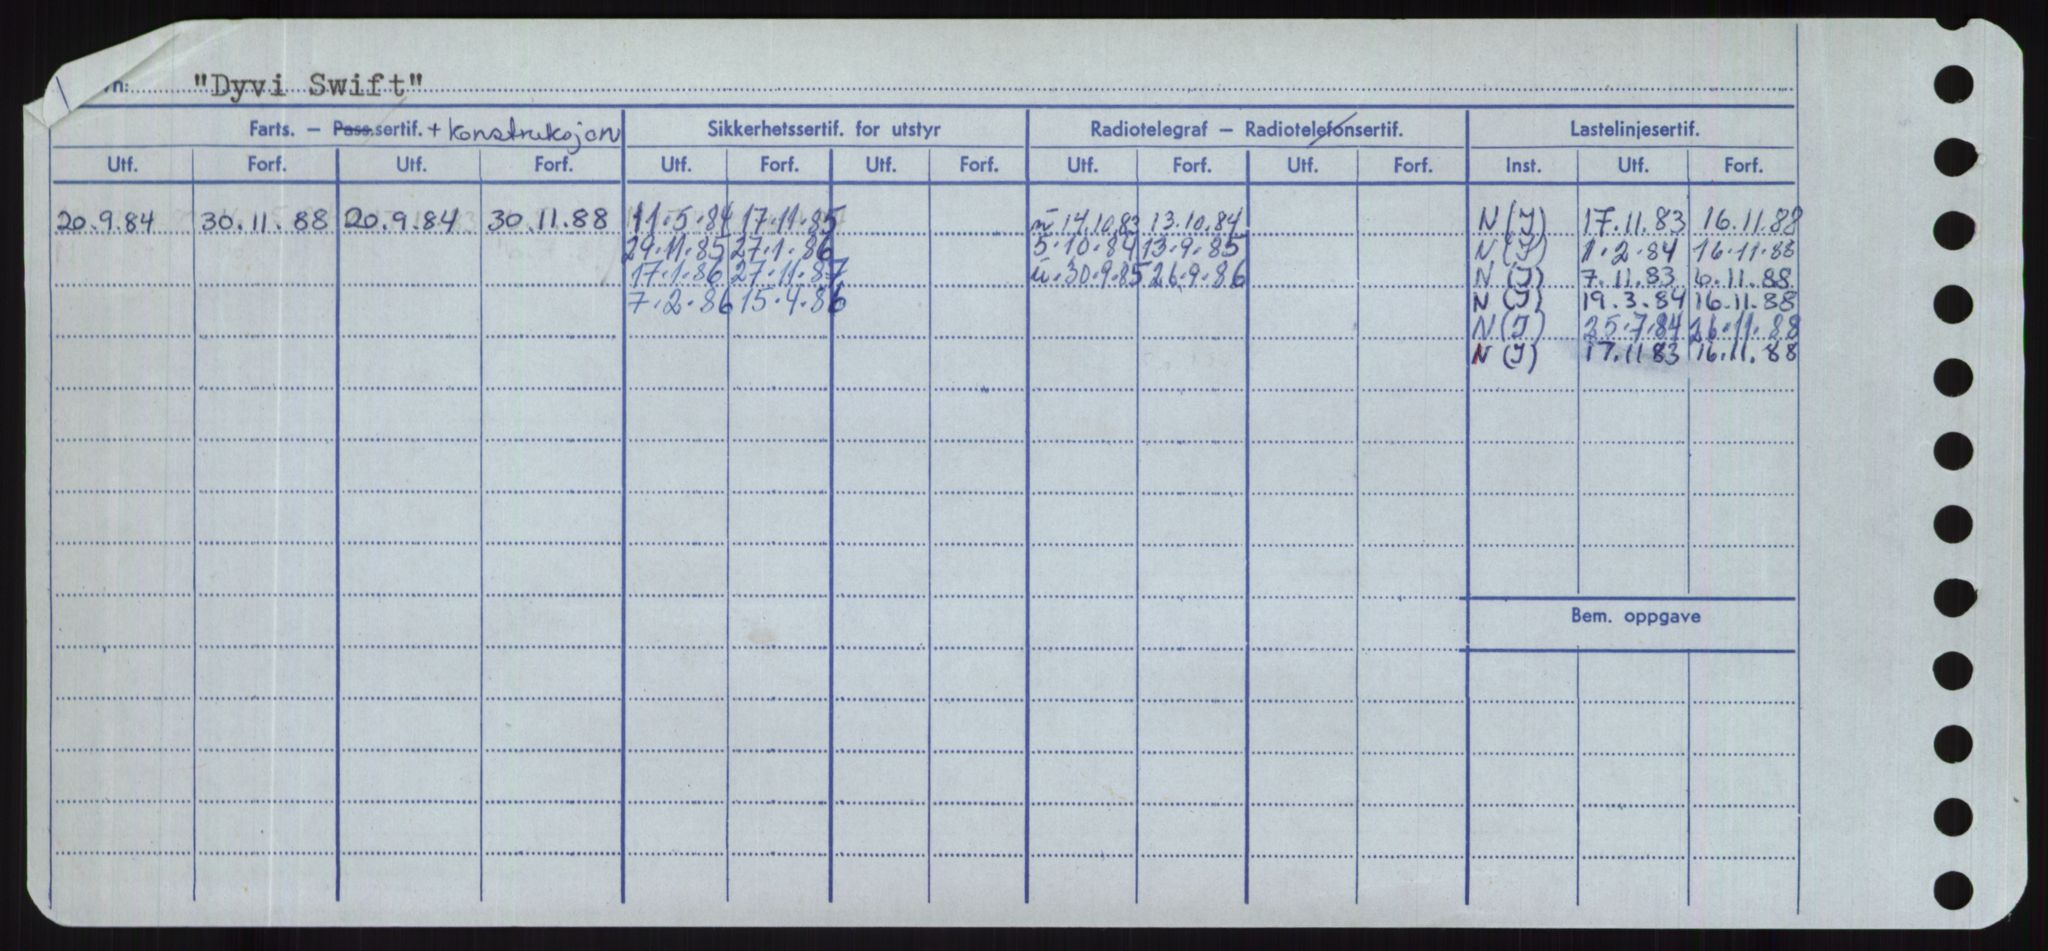 n: "Dyvi Swift"
Farts. — Pass.sertif. + konstruksjon Sikkerhetssertif. for utstyr Radiotelegraf — Radiotelefonsertif. Lastelinjesertif.
Utf. Forf. Utf. Forf. Utf. Forf. Utf. Forf. Utf. Forf. Utf. Forf. Inst. Utf. Forf.
20.9.84 30.11.88 20.9.84 30.11.88 11.5.84 17.11.85 14.10.83 13.10.84 N (I) 17.11.83 16.11.88
29.11.85 27.1.86 5.10.84 13.9.85 N (I) 1.2.84 16.11.88
17.1.86 27.11.87 30.9.85 26.9.86 N (I) 7.11.83 6.11.88
7.2.86 15.4.86 N (I) 19.3.84 16.11.88
N (I) 25.7.84 26.11.88
N (I) 17.11.83 16.11.88
Bem. oppgave